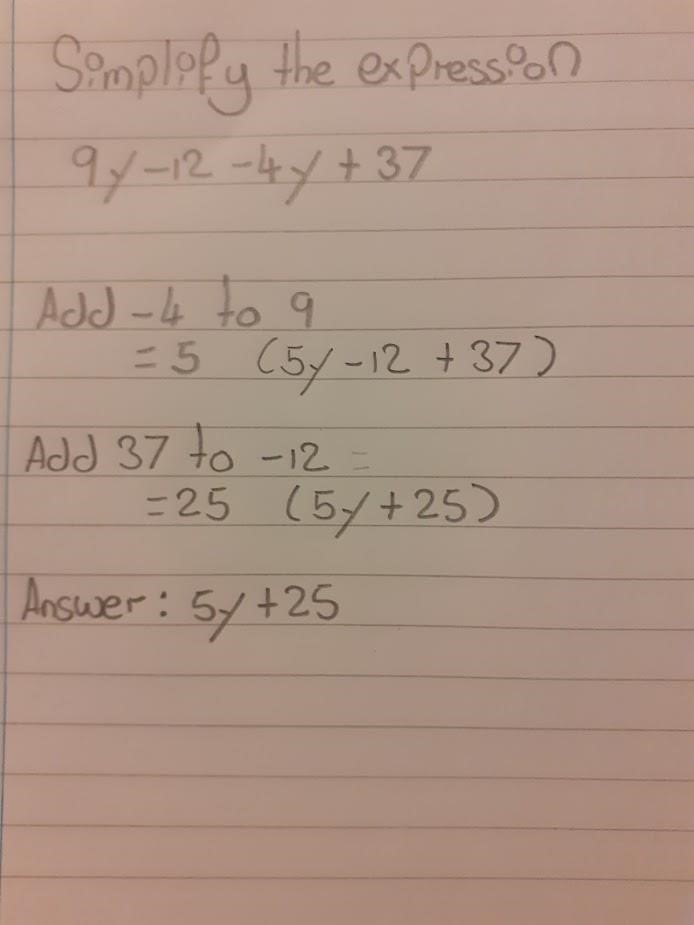 Simplify the expression
9y - 12 - 4y + 37
Add - 4 to 9
= 5 (5y - 12 + 37)
Add 37 to - 12 =
= 25 (5y + 25)
Answer: 5y + 25